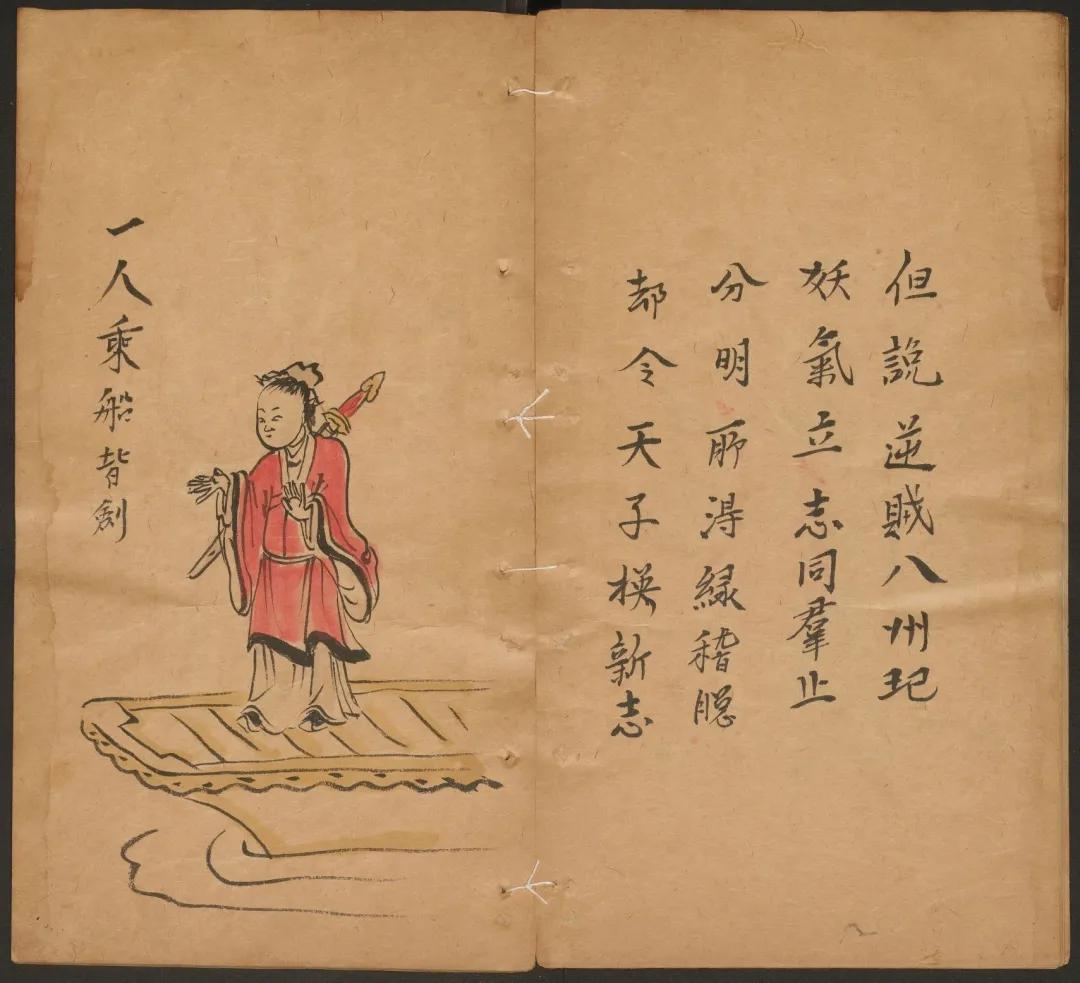 但說逆賊八州圯
妖氣立志同羣止
分明所淂緑稽
却令天子楧新志
一人乗船背劍